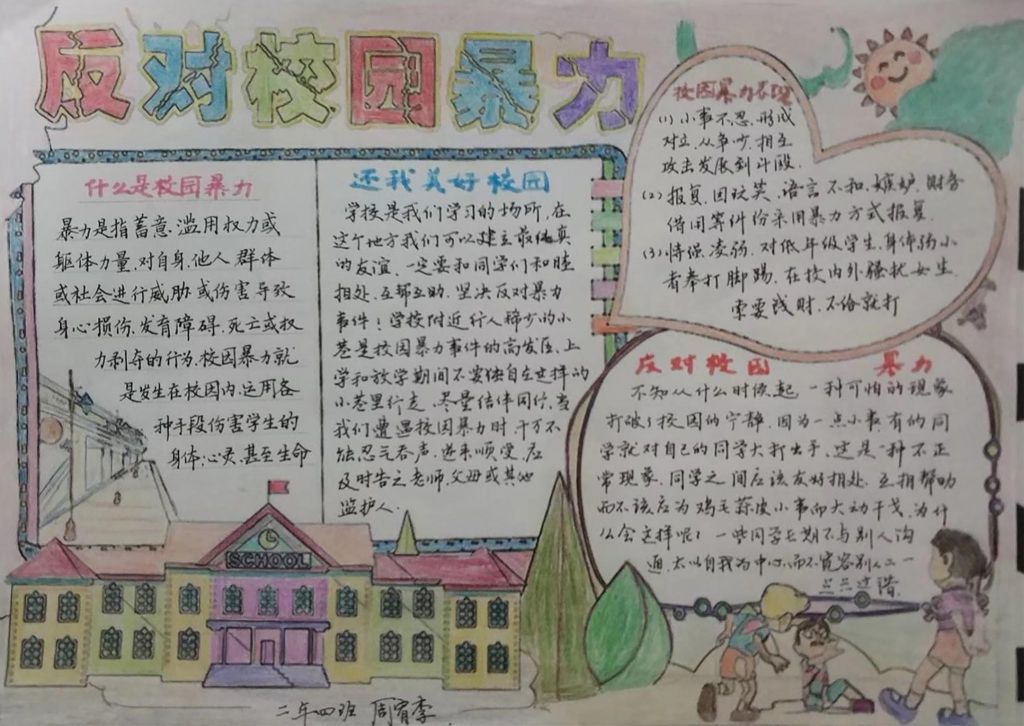 反对校园暴力
什么是校园暴力
暴力是指蓄意滥用权力或
躯体力量,对自身,他人群体
或社会进行威胁或伤害导致
身心损伤,发育障碍,死亡或权
力剥夺的行为,校园暴力就
是发生在校园内,运用各
种手段伤害学生的
身体,心灵,甚至生命
还我美好校园
学校是我们学习的场所,在
这个地方我们可以建立最纯真
的友谊,一定要和同学们和睦
相处,互帮互助,坚决反对暴力
事件!学校附近行人稀少的小
巷是校园暴力事件的高发区,上
学和放学期间不要独自在这样的
小巷里行走,尽量结伴同行,当
我们遭遇校园暴力时,千万不
能忍气吞声,逆来顺受,应
及时告之老师,父母或其他
监护人.
校园暴力表现
(1)小事不忍,形成
对立,从争吵,相互
攻击发展到斗殴.
(2)报复,因玩笑,语言不和,嫉妒,财务
借用等件份采用暴力方式报复.
(3)恃强凌弱,对低年级学生,身体弱小
者拳打脚踢,在校内外骚扰女生
索要钱财,不给就打
反对校园 暴力
不知从什么时候起 一种可怕的现象
打破了校园的宁静,因为一点小事有的同
学就对自己的同学大打出手,这是一种不正
常现象,同学之间应该友好相处,互相帮助
而不该应为鸡毛蒜皮小事而大动干戈,为什
么会这样呢?一些同学长期不与别人沟
通,太以自我为中心,而不宽容别人
SCHOOL
二年四班 周宥李